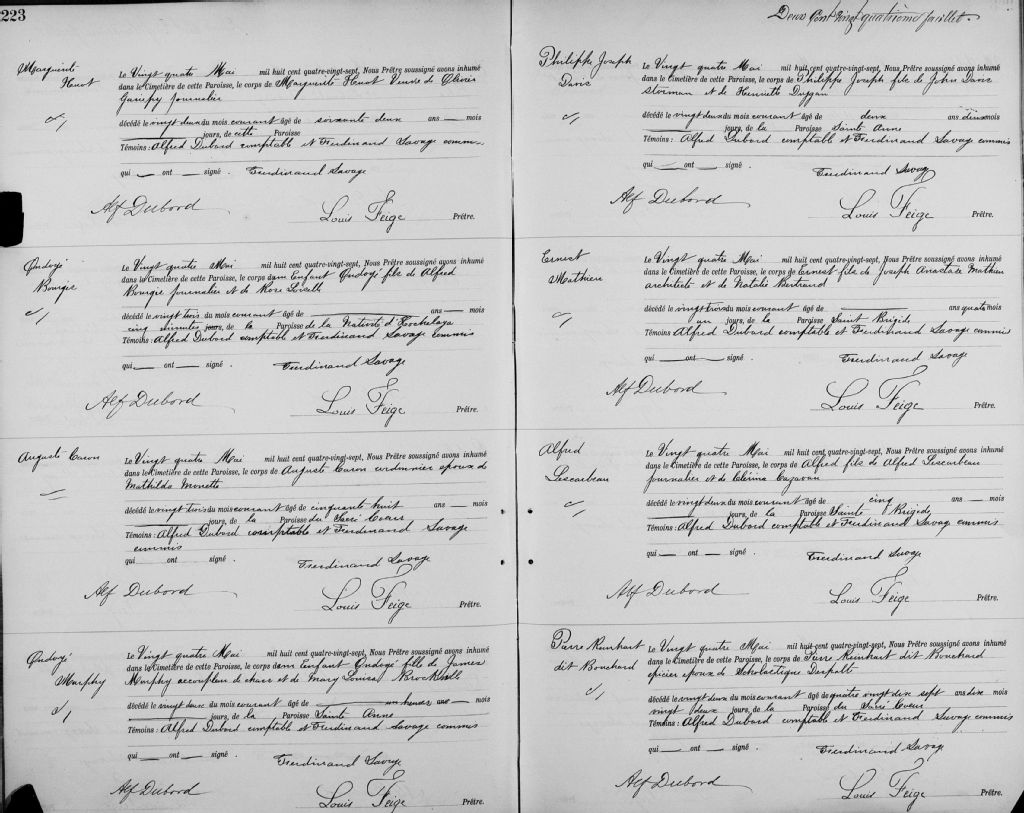 223
Marguerite
Huot
Le Vingt quatre Mai mil huit cent quatre-vingt-sept, Nous Prêtre soussigné avons inhumé
dans le Cimetière de cette Paroisse, le corps de Marguerite Huot Veuve de Olivier
Gariepy Journalier
décédé le vingt deux du mois courant âgé de soixante deux ans — mois
jours, de cette Paroisse
Témoins : Alfred Dubord comptable et Ferdinand Savage commis
qui — ont — signé . Ferdinand Savage
Alf Dubord
Louis Feige Prêtre.
Ondoyé
Bourgie
Le Vingt quatre Mai mil huit cent quatre-vingt-sept, Nous Prêtre soussigné avons inhumé
dans le Cimetière de cette Paroisse, le corps d'un Enfant Ondoyé fils de Alfred
Bourgie journalier et de Rose Loiselle
décédé le vingt trois du mois courant âgé de ans — mois
cinq minutes jours, de la Paroisse de la Nativité d'Hochelaga
Témoins : Alfred Dubord comptable et Ferdinand Savage commis
qui — ont — signé . Ferdinand Savage
Alf Dubord
Louis Feige Prêtre.
Auguste Caron
Le Vingt quatre Mai mil huit cent quatre-vingt-sept, Nous Prêtre soussigné avons inhumé
dans le Cimetière de cette Paroisse, le corps de Auguste Caron cordonnier epoux de
Mathilda Monette
décédé le vingt trois du mois courant âgé de cinquante huit ans — mois
jours, de la Paroisse du Sacré Coeur
Témoins : Alfred Dubord comptable et Ferdinand Savage
commis
qui — ont — signé . Ferdinand Savage
Alf Dubord
Louis Feige Prêtre.
Ondoyé
Murphy
Le Vingt quatre Mai mil huit cent quatre-vingt-sept, Nous Prêtre soussigné avons inhumé
dans le Cimetière de cette Paroisse, le corps d'un Enfant Ondoyé fille de James
Murphy accoupleur de chars et de Mary Louisa
décédé le vingt deux du mois courant âgé de heures ans — mois
jours, de la Paroisse Sainte Anne
Témoins : Alfred Dubord comptable et Ferdinand Savage commis
qui — ont — signé . Ferdinand Savage
Alf Dubord
Louis Feige Prêtre.
Deux Cent Vingt quatrième feuillet.
Philippe Joseph
Davis
Le Vingt quatre Mai mil huit cent quatre-vingt-sept, Nous Prêtre soussigné avons inhumé
dans le Cimetière de cette Paroisse, le corps de Philippe Joseph fils de John Davis
storeman et de Henriette Duggan
décédé le vingt deux du mois courant âgé de deux ans deux mois
jours, de la Paroisse Sainte Anne
Témoins : Alfred Dubord comptable et Ferdinand Savage commis
qui — ont — signé . Ferdinand Savage
Alf Dubord
Louis Feige Prêtre.
Ernest
Mathieu
Le Vingt quatre Mai mil huit cent quatre-vingt-sept, Nous Prêtre soussigné avons inhumé
dans le Cimetière de cette Paroisse, le corps de Ernest fils de Joseph Anastase Mathieu
architecte et de Natalie Bertrand
décédé le vingt trois du mois courant âgé de ans quatre mois
un jours, de la Paroisse Saint Brigide
Témoins : Alfred Dubord comptable et Ferdinand Savage commis
qui — ont — signé . Ferdinand Savage
Alf Dubord
Louis Feige Prêtre.
Alfred
Lescarbeau
Le Vingt quatre Mai mil huit cent quatre-vingt-sept, Nous Prêtre soussigné avons inhumé
dans le Cimetière de cette Paroisse, le corps de Alfred fils de Alfred Lescarbeau
journalier et de Clérina Cazavan
décédé le vingt deux du mois courant âgé de cinq ans — mois
jours, de la Paroisse Sainte Brigide
Témoins : Alfred Dubord comptable et Ferdinand Savage commis
qui — ont — signé . Ferdinand Savage
Alf Dubord
Louis Feige Prêtre.
Pierre Reinhart
dit Bouchard
Le Vingt quatre Mai mil huit cent quatre-vingt-sept, Nous Prêtre soussigné avons inhumé
dans le Cimetière de cette Paroisse, le corps de Pierre Reinhart dit Bouchard
epicier epoux de Scholastique
décédé le vingt deux du mois courant âgé de quatre vingt dix sept ans dix mois
vingt deux jours, de la Paroisse du Sacré Coeur
Témoins : Alfred Dubord comptable et Ferdinand Savage commis
qui — ont — signé . Ferdinand Savage
Alf Dubord
Louis Feige Prêtre.